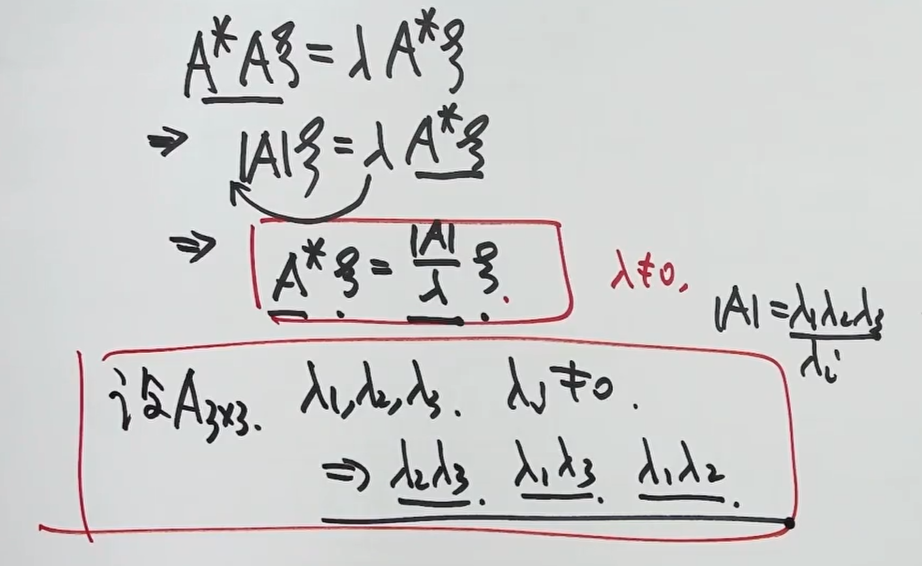 A*Aξ = λA*ξ
⇒ |A|ξ = λA*ξ
⇒ A*ξ = |A|/λ ξ. λ≠0.
|A| = λ₁λ₂λ₃/λᵢ
设A₃ₓ₃. λ₁,λ₂,λ₃. λⱼ≠0.
⇒ λ₂λ₃. λ₁λ₃. λ₁λ₂.